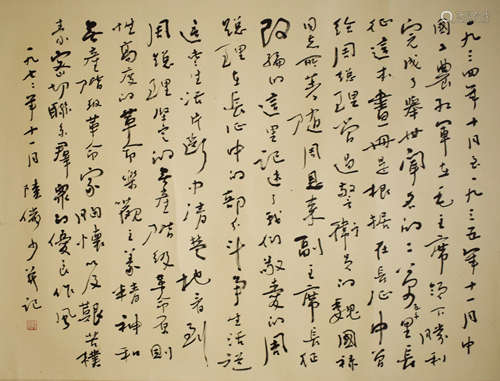 一九三四年十月至一九三五年十一月中
国工农红军在毛主席领导下胜利
完成了举世闻名的二万五千里长
征这本书一册是根据在长征中曾
给周总理当过警卫员的魏国禄
同志所著随周恩来副主席长征
改编的这里记述了我们敬爱的周
总理在长征中的部分斗争生活通过
这些生活片断中清楚地看到
周总理坚定的无产阶级革命原则
性高度的革命乐观主义精神和
无产阶级革命家胸怀以及艰苦朴
素密切联系群众的优良作风
一九七七年十一月 陆俨少并记